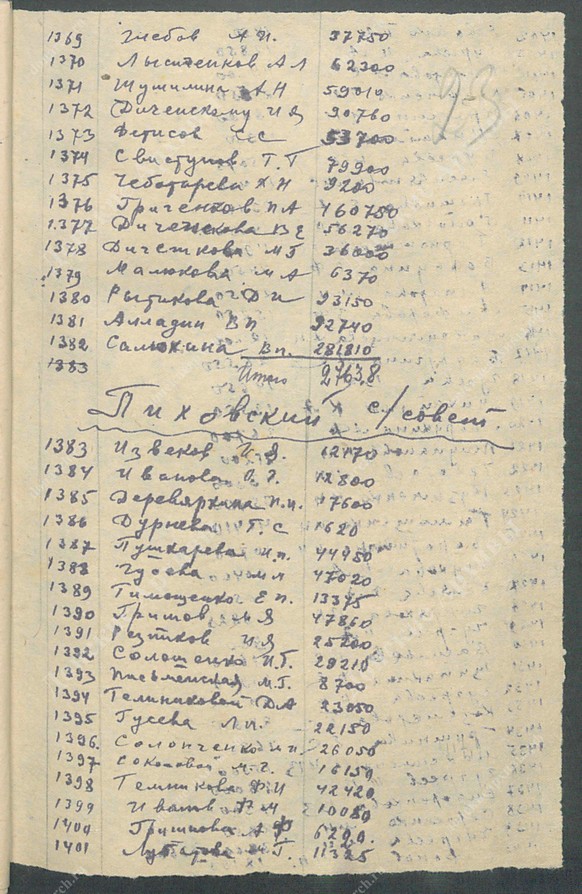 93
1369 Глебов А И. 37750
1370 Лысиченков А Л 62300
1371 Шушилина А Н 59010
1372 Диченскому И Я 90760
1373 Фетисов С С 53700
1374 Свистунов Т. Т 79900
1375 Чеботарева Х Н 9200
1376 Гриченков П А 160750
1377 Диченскова В Е 56270
1378 М Г 36000
1379 Малюкова М А 6370
1380 Рытикова Д И 93150
1381 Алладин В П 92740
1382 Салюкина В п. 281810
1383 Итого 27638
Пиховский с/совет
1383 Извеков И. Я. 12170
1384 Иванова 12800
1385 Деревяркина П. И. 17600
1386 Дурнева Г. С 1620
1387 Пушкарева И. п. 44950
1388 Гусева М Л 47020
1389 Тимощенко Е П. 13375
1390 Громов М Я 47860
1391 Резников И Я 25200
1392 Солошенко И. Г. 29210
1393 Письменская М. Г. 8700
1394 Д А 23050
1395 Гусева Л И. 22150
1396. Солопченко 26050
1397 Соколовой М. Г. 16150
1398 Темникова Ф И 42420
1399 Иванов Ф М 10080
1400 Гришкова А Ф 6200
1401 Г. 11325